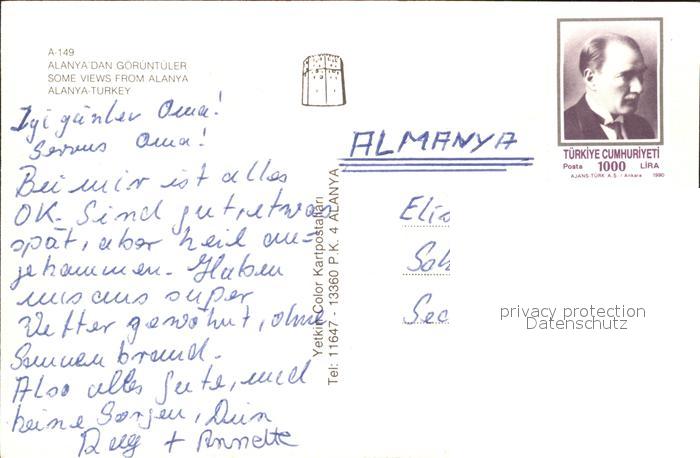 A-149
ALANYA'DAN GÖRÜNTÜLER
SOME VIEWS FROM ALANYA
ALANYA-TURKEY
Iyi günler Oma!
Servus Oma!
Bei mir ist alles
OK. Sind gut, etwas
spät, aber heil an=
gekommen. Haben
uns ans super
Wetter gewöhnt, ohne
Sonnenbrand.
Also alles Gute, und
keine Sorgen, Dein
+ Annette
Yetkin Color Kartpostalları
Tel: 11647 - 13360 P.K. 4 ALANYA
ALMANYA
TÜRKİYE CUMHURİYETİ
Posta 1000 LİRA
AJANS-TÜRK A.Ş. / Ankara 1990
privacy protection
Datenschutz